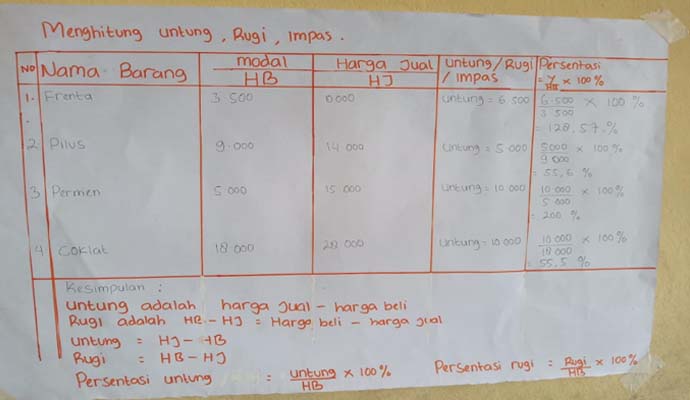 Menghitung untung, Rugi, Impas.
No Nama Barang modal HB Harga Jual HJ Untung/Rugi/Impas Persentasi = /HB × 100%
1. Frenta 3.500 0000 Untung = 6.500 6.500/3.500 × 100% = 128,57.%
2. Pilus 9.000 14 000 Untung = 5.000 5000/9000 × 100% = 55,6 %
3 Permen 5 000 15 000 Untung = 10 000 10 000/5 000 × 100% = 200 %
4 Coklat 18 000 28 000 Untung = 10 000 10 000/18 000 × 100% = 55.5 %
Kesimpulan :
Untung adalah harga jual – harga beli
Rugi adalah HB – HJ = Harga beli – harga jual
Untung = HJ – HB
Rugi = HB – HJ
Persentasi untung = untung/HB × 100% Persentasi rugi = Rugi/HB × 100%